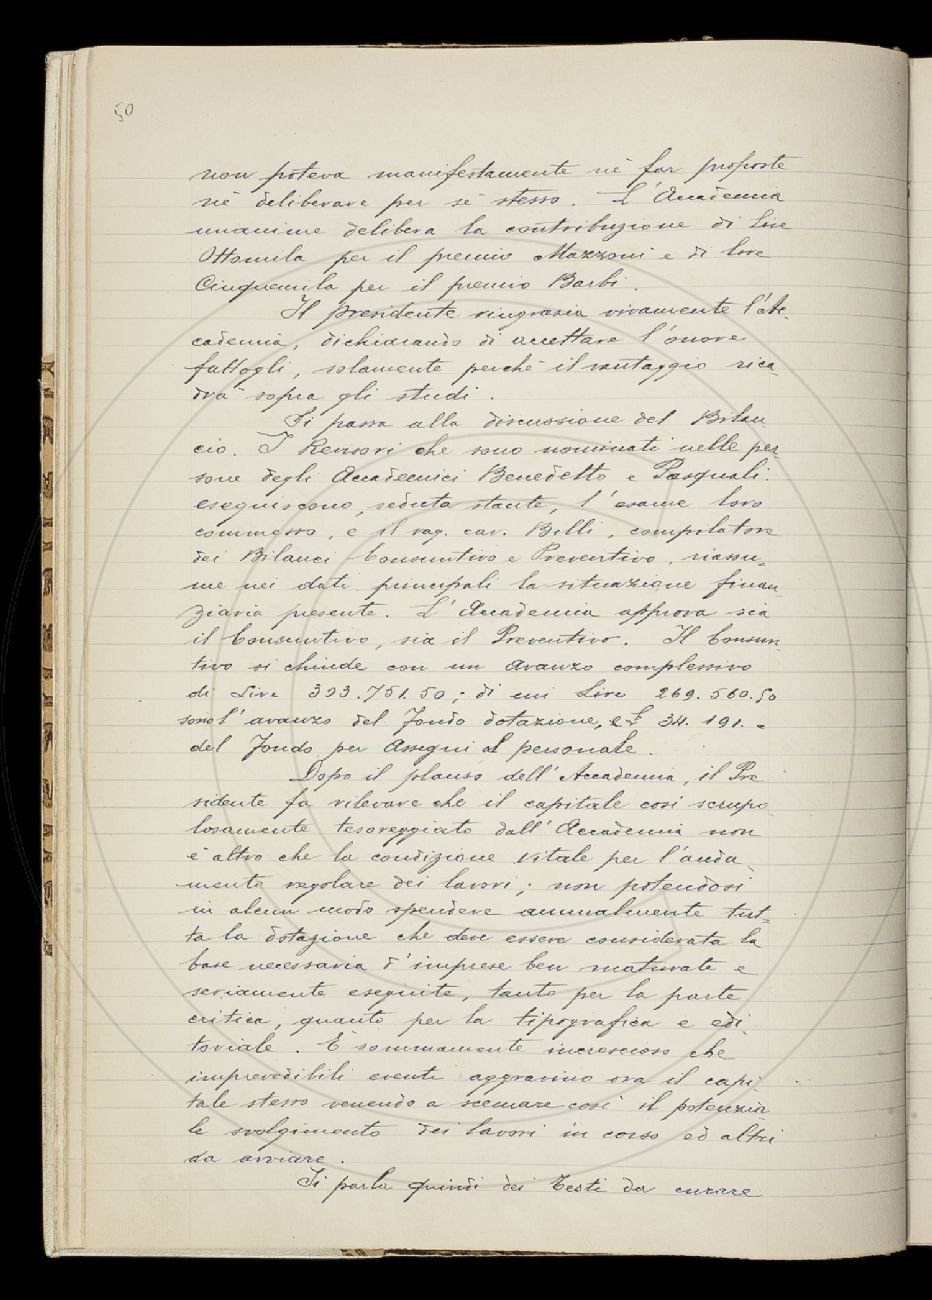 50
non poteva manifestamente nè far proposte
nè deliberare per sè stesso. L'Accademia
unanime delibera la contribuzione di Lire
Ottomila per il premio Mazzoni e di lire
Cinquemila per il premio Barbi.
Il presidente ringrazia vivamente l'Ac-
cademia, dichiarando di accettare l'onore
fattogli, solamente perchè il vantaggio rica
drà sopra gli studi.
Si passa alla discussione del Bilan
cio. I Revisori che sono nominati nelle per-
sone degli Accademici Benedetto e Pasquali.
eseguiscono, seduta stante, l'esame loro
commesso, e il rag. cav. Billi, compilatore
dei Bilanci Consuntivo e Preventivo, riassu-
me nei dati principali la situazione finan
ziaria presente. L'Accademia approva sia
il Consuntivo, sia il Preventivo. Il Consun
tivo si chiude con un avanzo complessivo
di Lire 393.751.50; di cui Lire 269.560.50
sono l'avanzo del Fondo dotazione, e £ 34.191.-
del Fondo per Assegni al personale.
Dopo il plauso dell'Accademia, il Pre
sidente fa rilevare che il capitale così scrupo
losamente tesoreggiato dall'Accademia non
è altro che la condizione vitale per l'anda
mento regolare dei lavori; non potendosi
in alcun modo spendere annualmente tut-
ta la dotazione che deve essere considerata la
base necessaria d'imprese ben maturate e
seriamente eseguite, tanto per la parte
critica, quanto per la tipografica e edi
toriale. È sommamente increscioso che
imprevedibili eventi aggravino ora il capi
tale stesso venendo a scemare così il potenzia
le svolgimento dei lavori in corso ed altri
da avviare.
Si parla quindi dei Testi da curare